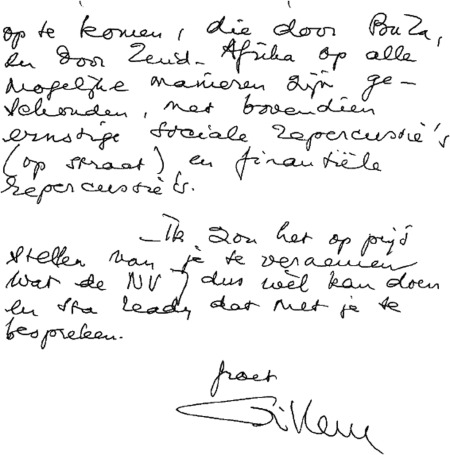 op te komen, die door BuZa,
en door Zuid-Afrika op alle
mogelijke manieren zijn ge-
schonden, met bovendien
ernstige sociale repercussie's
(op straat) en financiële
repercussie's.
Ik zou het op prijs
stellen van je te vernemen
wat de NVJ dus wèl kan doen
en sta ready dat met je te
bespreken.
groet
Willem